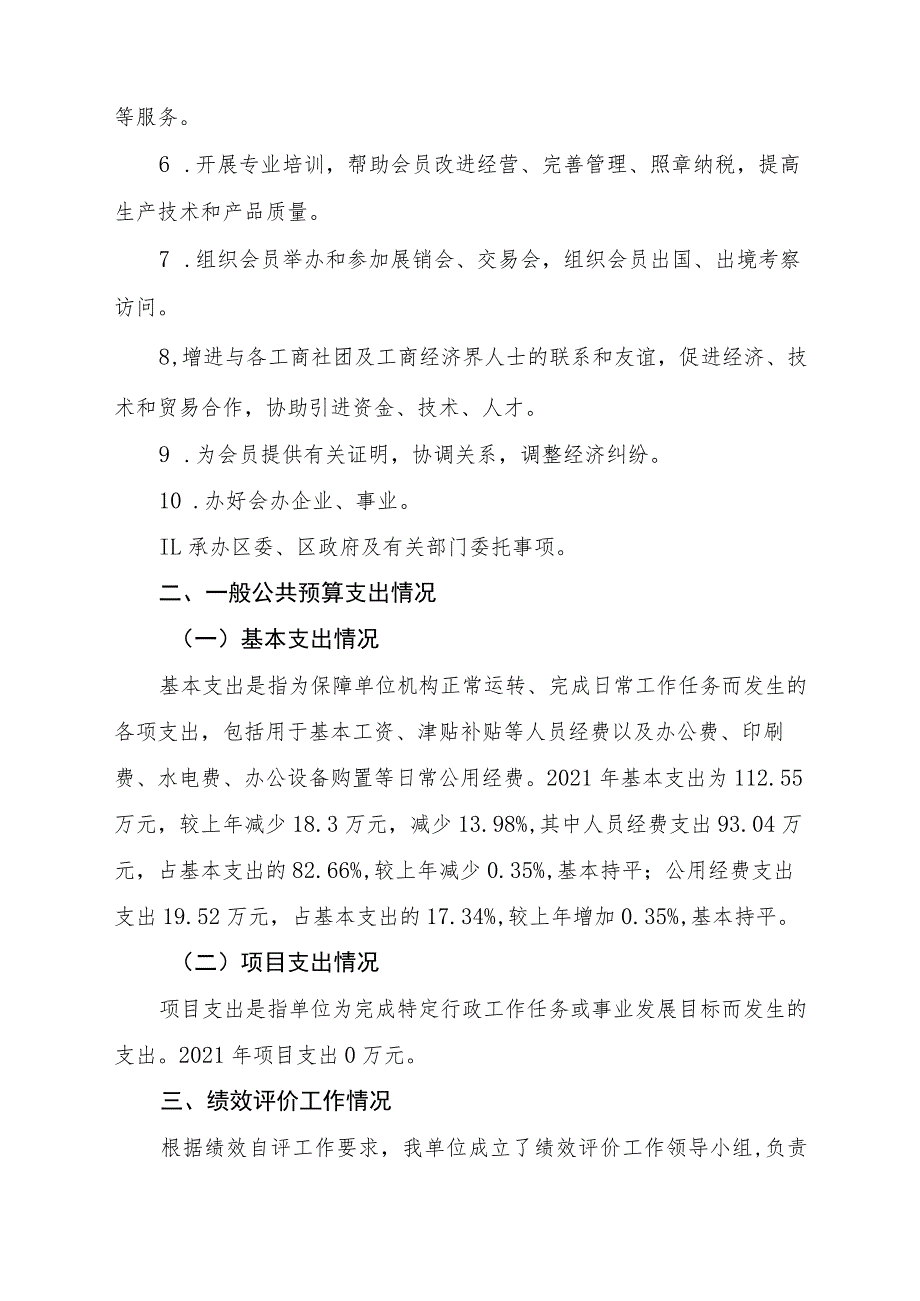 等服务。
6 .开展专业培训，帮助会员改进经营、完善管理、照章纳税，提高
生产技术和产品质量。
7 .组织会员举办和参加展销会、交易会，组织会员出国、出境考察
访问。
8,增进与各工商社团及工商经济界人士的联系和友谊，促进经济、技
术和贸易合作，协助引进资金、技术、人才。
9 .为会员提供有关证明，协调关系，调整经济纠纷。
10 .办好会办企业、事业。
IL承办区委、区政府及有关部门委托事项。
二、一般公共预算支出情况
（一）基本支出情况
基本支出是指为保障单位机构正常运转、完成日常工作任务而发生的
各项支出，包括用于基本工资、津贴补贴等人员经费以及办公费、印刷
费、水电费、办公设备购置等日常公用经费。2021年基本支出为112.55
万元，较上年减少18.3万元，减少13.98%,其中人员经费支出93.04万
元，占基本支出的82.66%,较上年减少0.35%,基本持平；公用经费支出
支出19.52万元，占基本支出的17.34%,较上年增加0.35%,基本持平。
（二）项目支出情况
项目支出是指单位为完成特定行政工作任务或事业发展目标而发生的
支出。2021年项目支出0万元。
三、绩效评价工作情况
根据绩效自评工作要求，我单位成立了绩效评价工作领导小组,负责